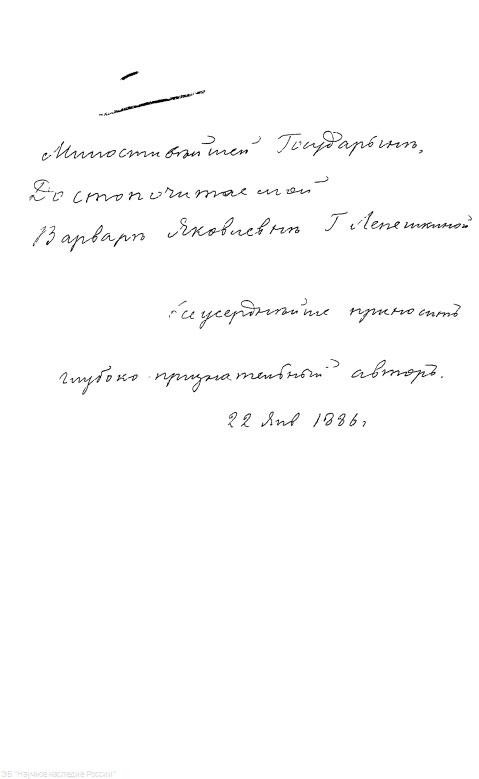 Милостивѣйшей Государынѣ,
Достопочитаемой
Варварѣ Яковлевнѣ Г Лепешкиной
Всеусерднѣйше приноситъ
глубоко-признательный авторъ.
22 Янв 1886,
ЭБ "Научное наследие России"